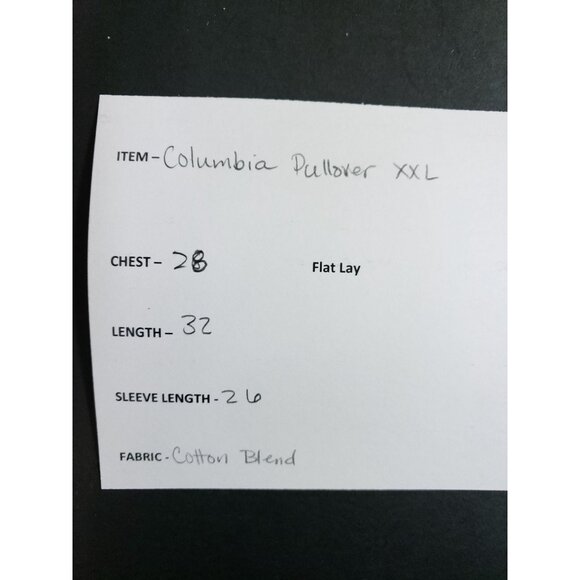 ITEM – Columbia Pullover XXL
CHEST – 28 Flat Lay
LENGTH – 32
SLEEVE LENGTH - 26
FABRIC - Cotton Blend